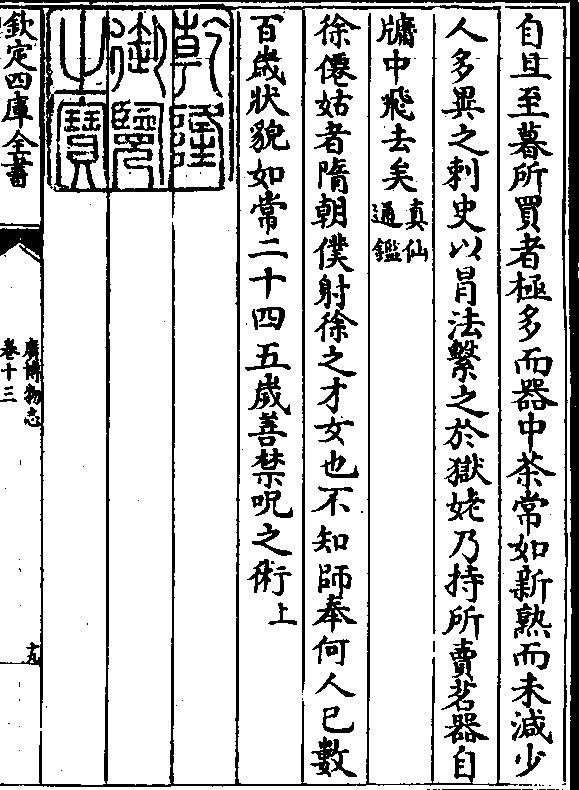 自旦至暮所買者極多而器中茶常如新熟而未減少
人多異之刺史以冐法繫之於獄姥乃持所賣茗器自
牗中飛去矣真仙通鑑
徐僊姑者隋朝僕射徐之才女也不知師奉何人已數
百歲狀貌如常二十四五歲善禁呪之術上
乾隆御覽之寶
欽定四庫全書
廣博物志
卷十三